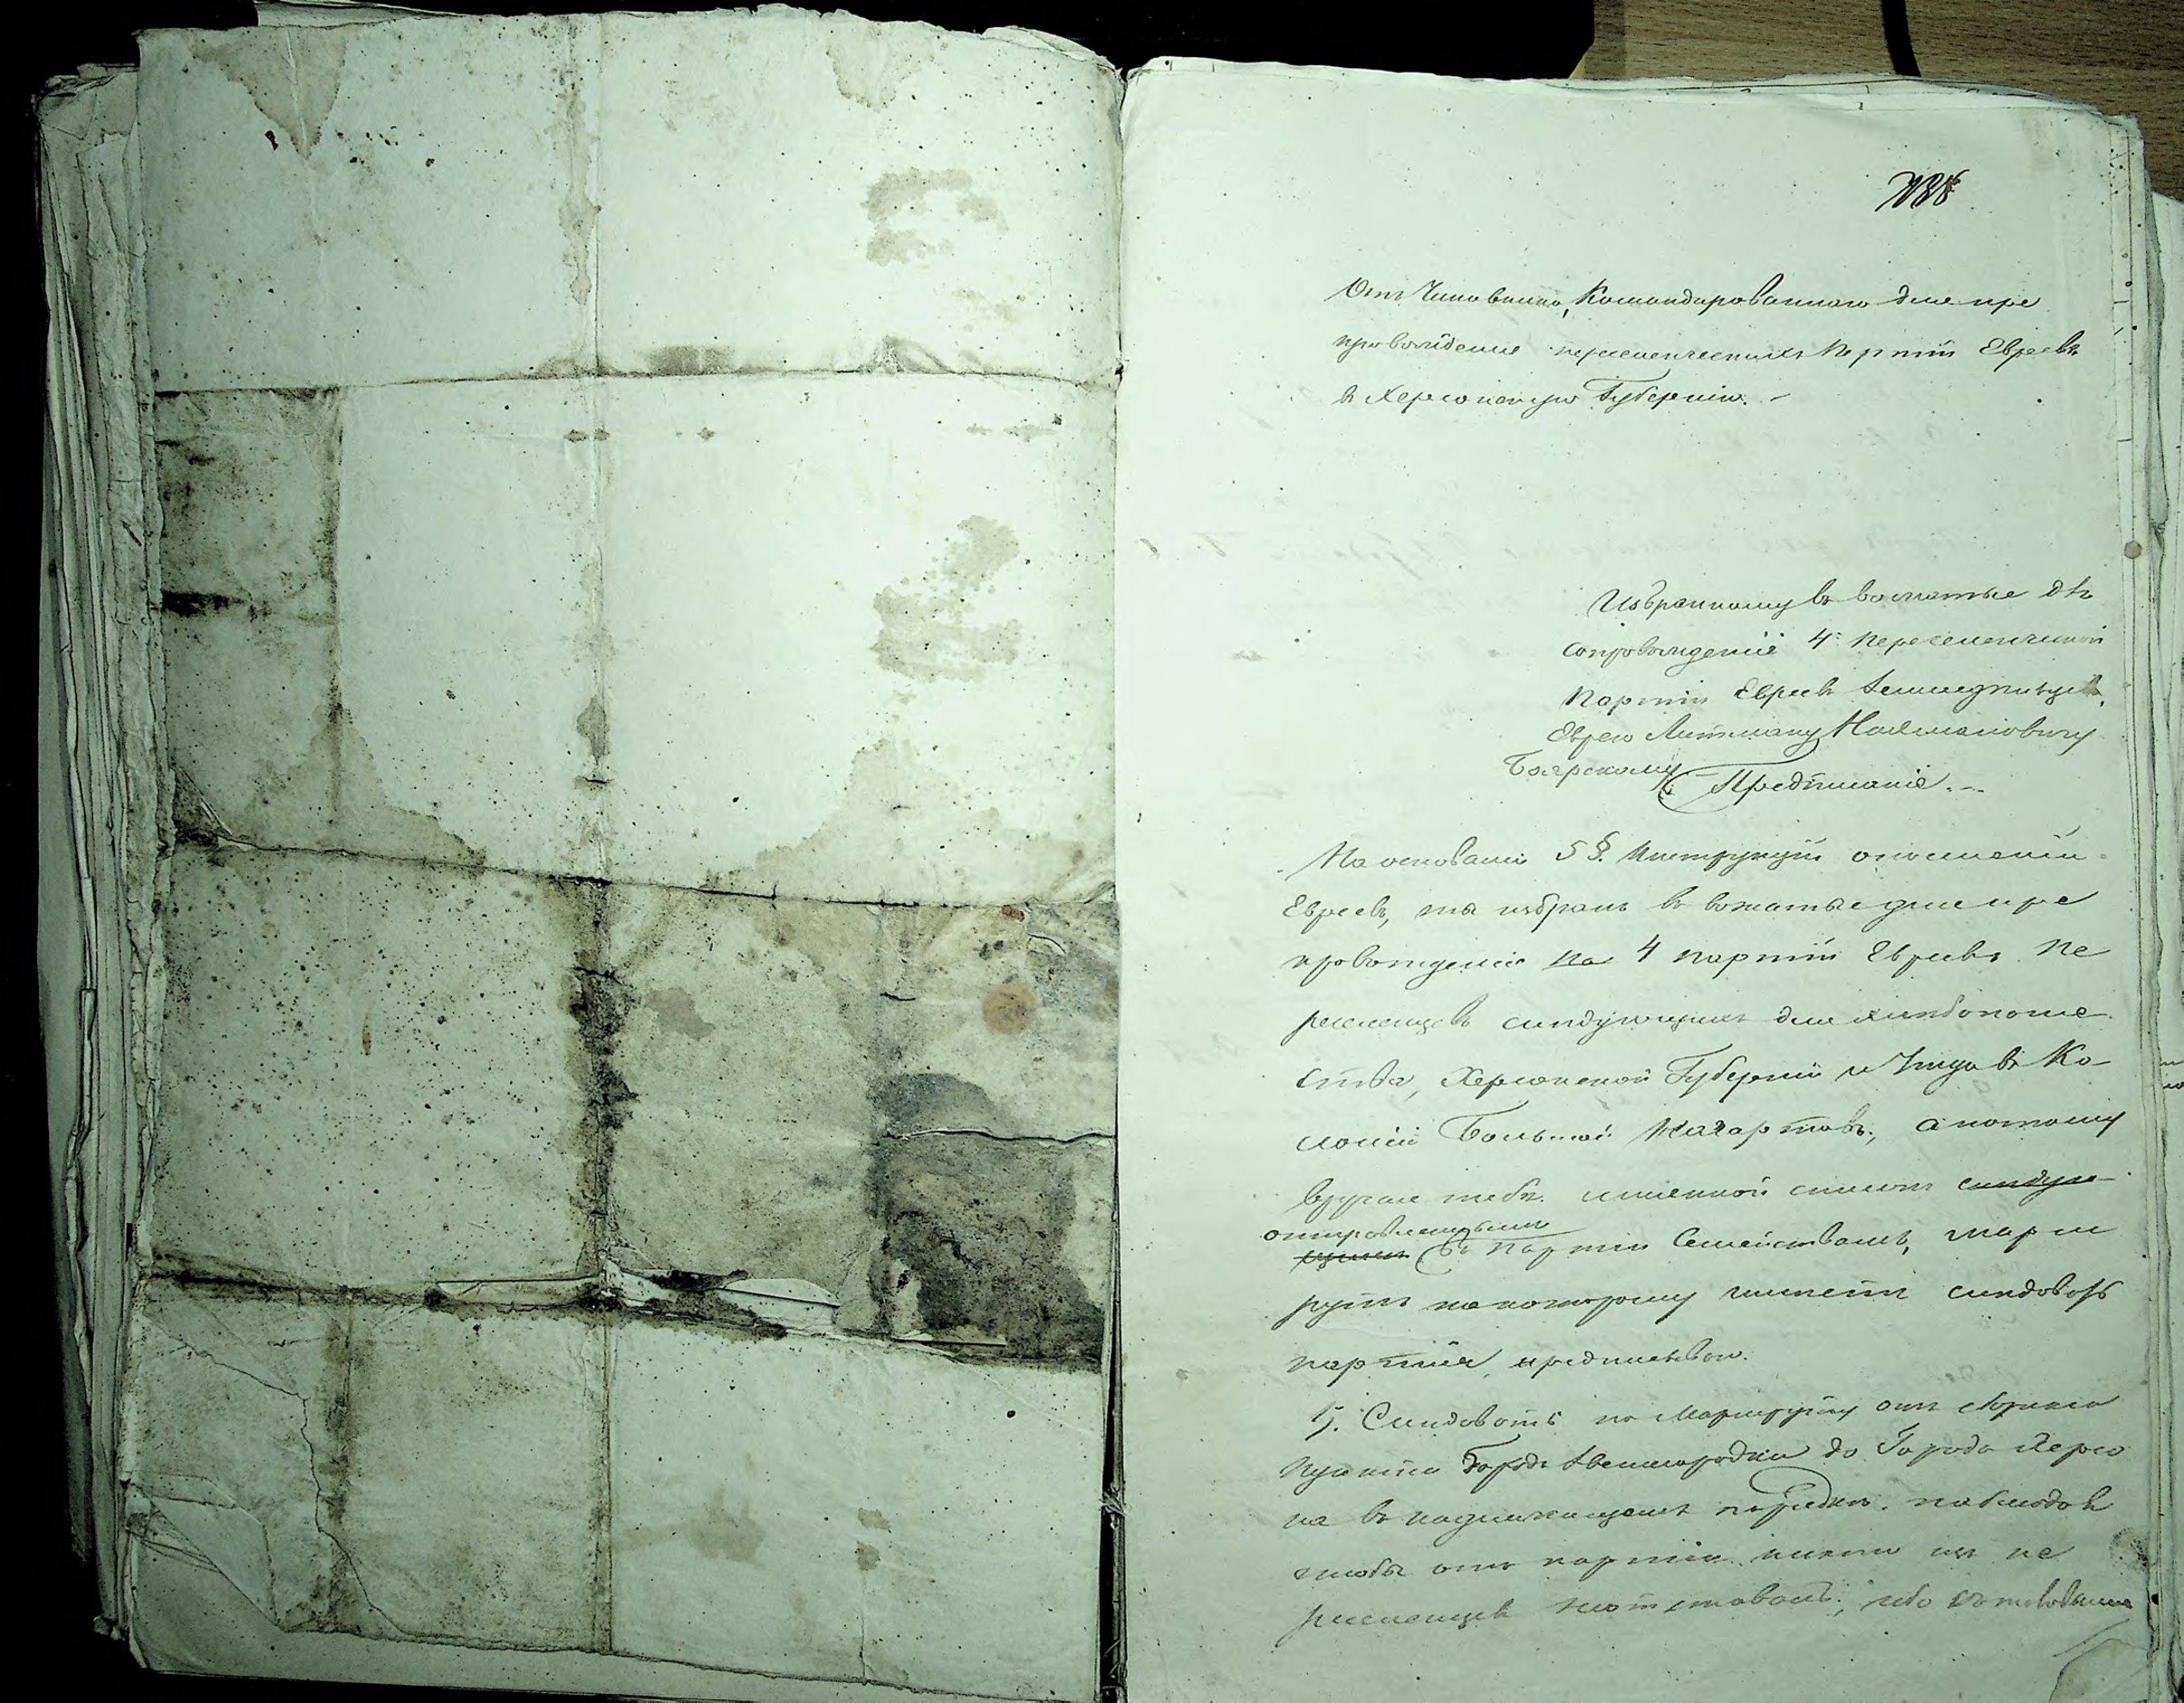 Отъ Чиновника, Командированнаго для пре
провожденія переселенческихъ партій Евреевъ
въ Херсонскую Губернію. –
Избранному въ вожатые для
сопровожденія 4й переселенческой
Партіи Евреевъ Земледѣльцевъ,
Еврею Литману Нахмановичу
Боярскому
Предписаніе. –
На основаніи 5 §. Инструкціи о поселеніи
Евреевъ, ты избранъ въ вожатые для пре
провожденія на 4 партіи Евреевъ пе
реселенцевъ слѣдующихъ для хлѣбопаше
ства, Херсонской Губерніи и Уѣзда въ Ко-
лоніи Большой, а потому
вручая тебѣ именной списокъ слѣдую-
отправляющимся
щимъ въ партіи Семействамъ, и мар ш
рутъ по которому имѣетъ слѣдовать
партія, предписываю.
1). Слѣдовать по Маршруту отъ сборнаго
пункта Города Звенигородки до Города Херсо
на въ надлежащемъ порядкѣ. наблюдая
чтобы отъ партіи никто изъ пе
реселенцевъ не отставалъ, ибо